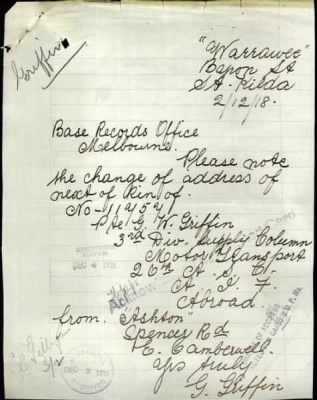 Griffin
"Warrawee"
Bapon St
St. Kilda
2/12/18.
Base Records Office
Melbourne.
Please note
the change of address of
next of kin of.
No - 11252
Pte G. W. Griffin
3rd Div. Supply Column
Motor Transport
26th A. S. C.
A. I. F.
Abroad.
from "Ashton"
Spencer Rd
E. Camberwell.
Yrs truly
G. Griffin